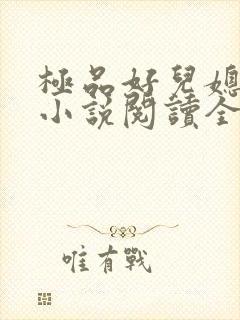 極品好兒媳
小說閱讀全
唯有戰